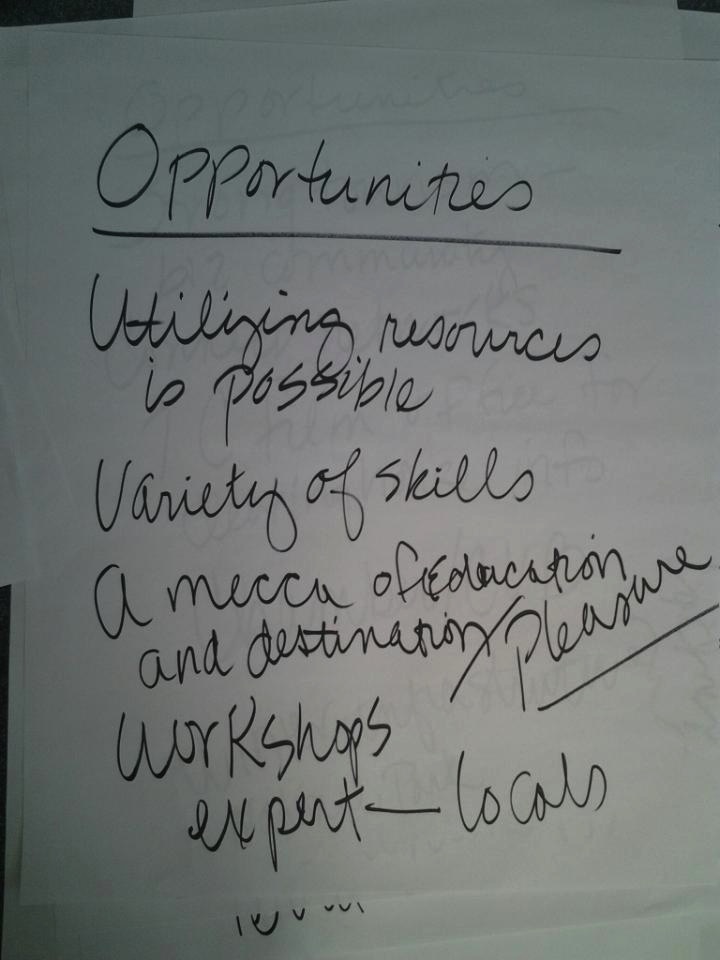 Opportunities
Utilizing resources
is possible
Variety of skills
A mecca of Education
and destination/pleasure
Workshops
expert — locals